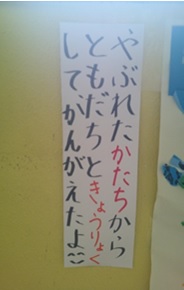 やぶれたかたちから
ともだちときょうりょく
してかんがえたよ